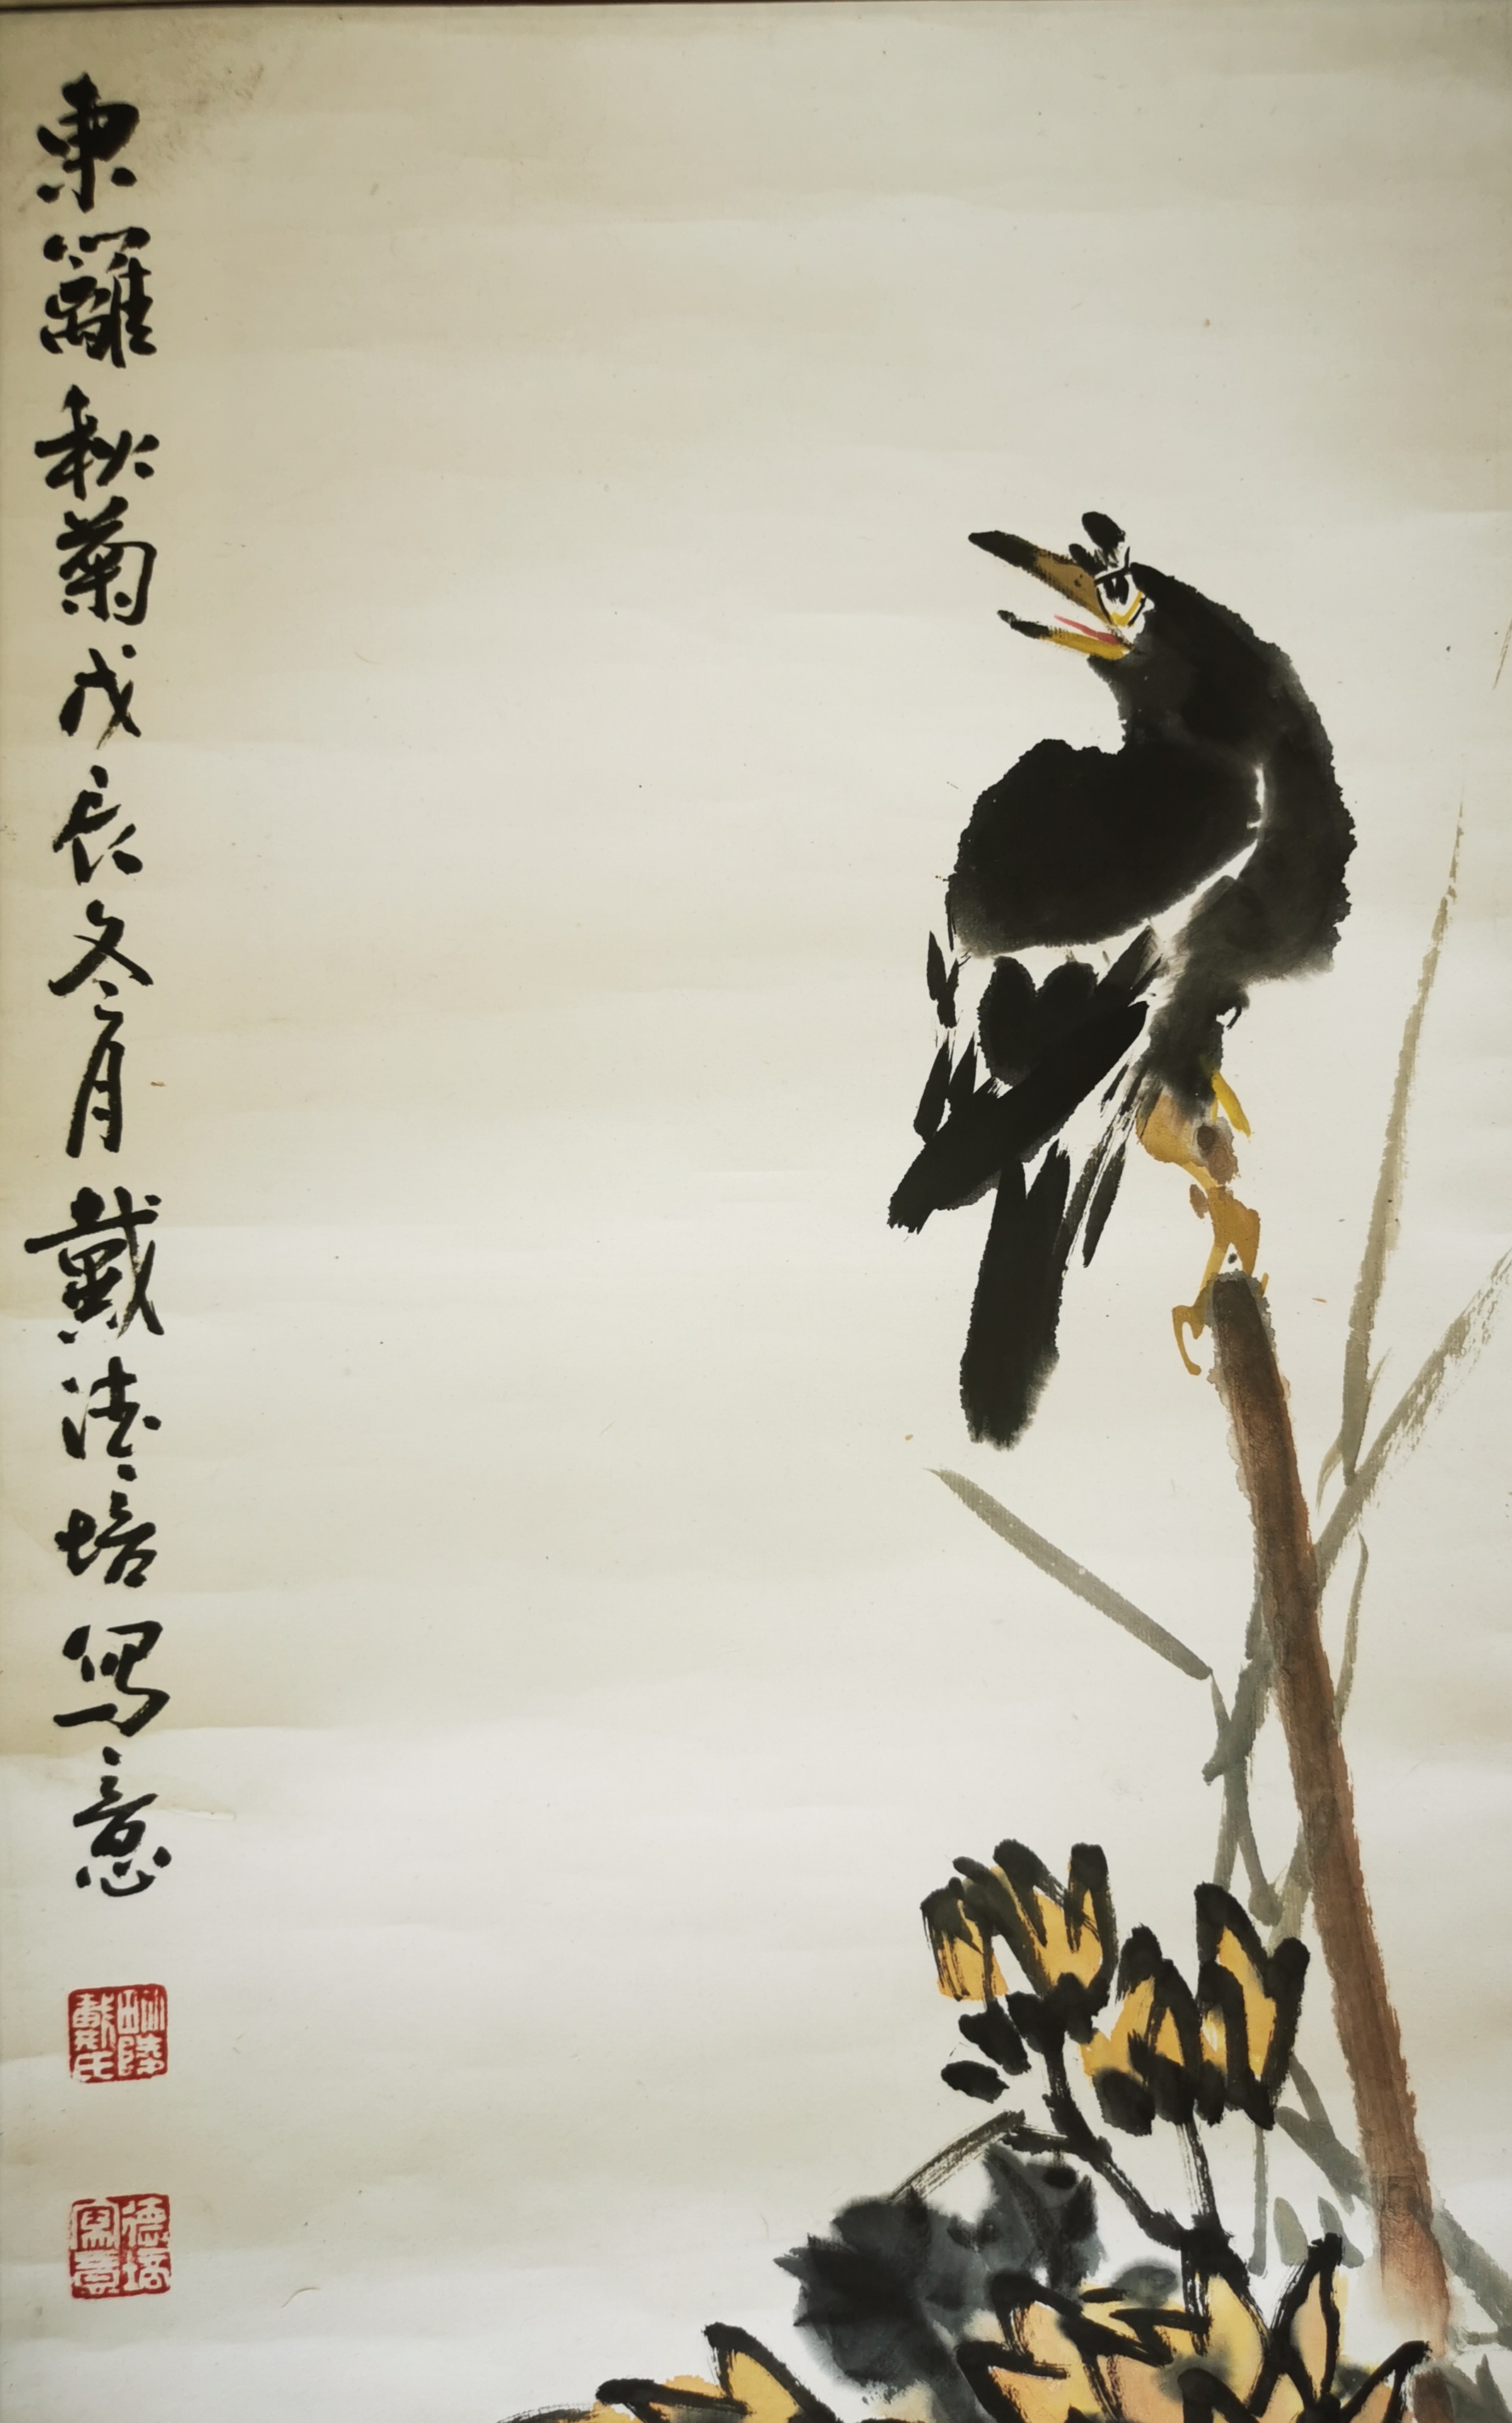 東籬秋菊戊辰冬月戴德培寫意
戴氏
德培寫意